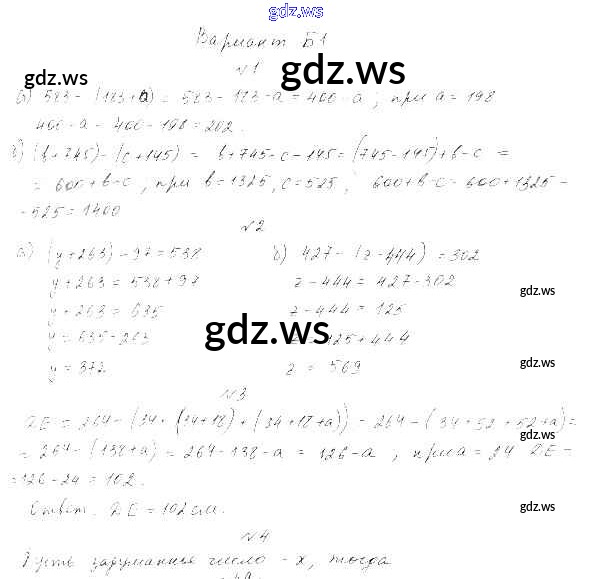 gdz.ws
Вариант Б1
gdz.ws
№1
gdz.ws
а) 583 - (183 + а) = 583 - 183 - а = 400 - а ; при а = 198
400 - а = 400 - 198 = 202.
б) (b + 745) - (c + 145) = b + 745 - c - 145 = (745 - 145) + b - c =
= 600 + b - c ; при b = 1325, c = 525 ; 600 + b - c = 600 + 1325 -
- 525 = 1400
№2
а) (y + 263) - 97 = 538
y + 263 = 538 + 97
y + 263 = 635
y = 635 - 263
y = 372
б) 427 - (z - 444) = 302
z - 444 = 427 - 302
z - 444 = 125
z = 125 + 444
z = 569
gdz.ws
gdz.ws
gdz.ws
№3
DE = 264 - (34 + (34 + 18) + (34 + 18 + а)) = 264 - (34 + 52 + 52 + а) =
gdz.ws
= 264 - (138 + а) = 264 - 138 - а = 126 - а , при а = 24 DE =
= 126 - 24 = 102.
Ответ. DE = 102 см.
gdz.ws
№4
Пусть задуманное число - x, тогда